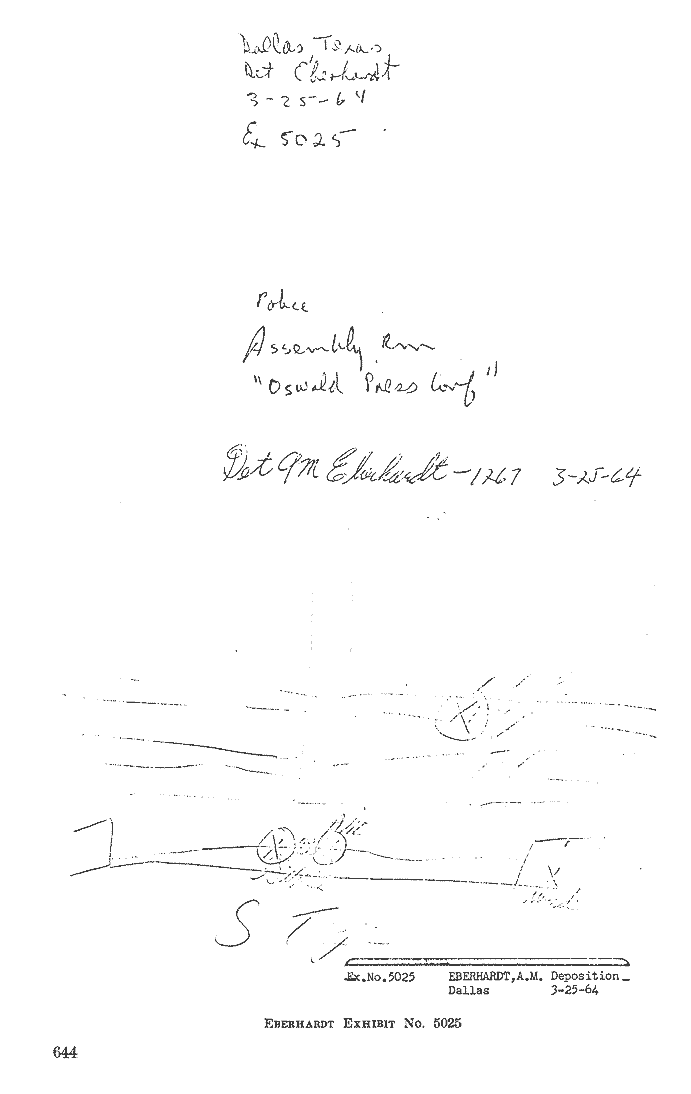 Dallas, Texas
Det Eberhardt
3-25-64
Ex 5025
Police
Assembly Rm
"Oswald Press Conf"
Det A M Eberhardt - 1267 3-25-64
X
X
X
Ex.No.5025 EBERHARDT,A.M. Deposition
Dallas 3-25-64
EBERHARDT EXHIBIT No. 5025
644